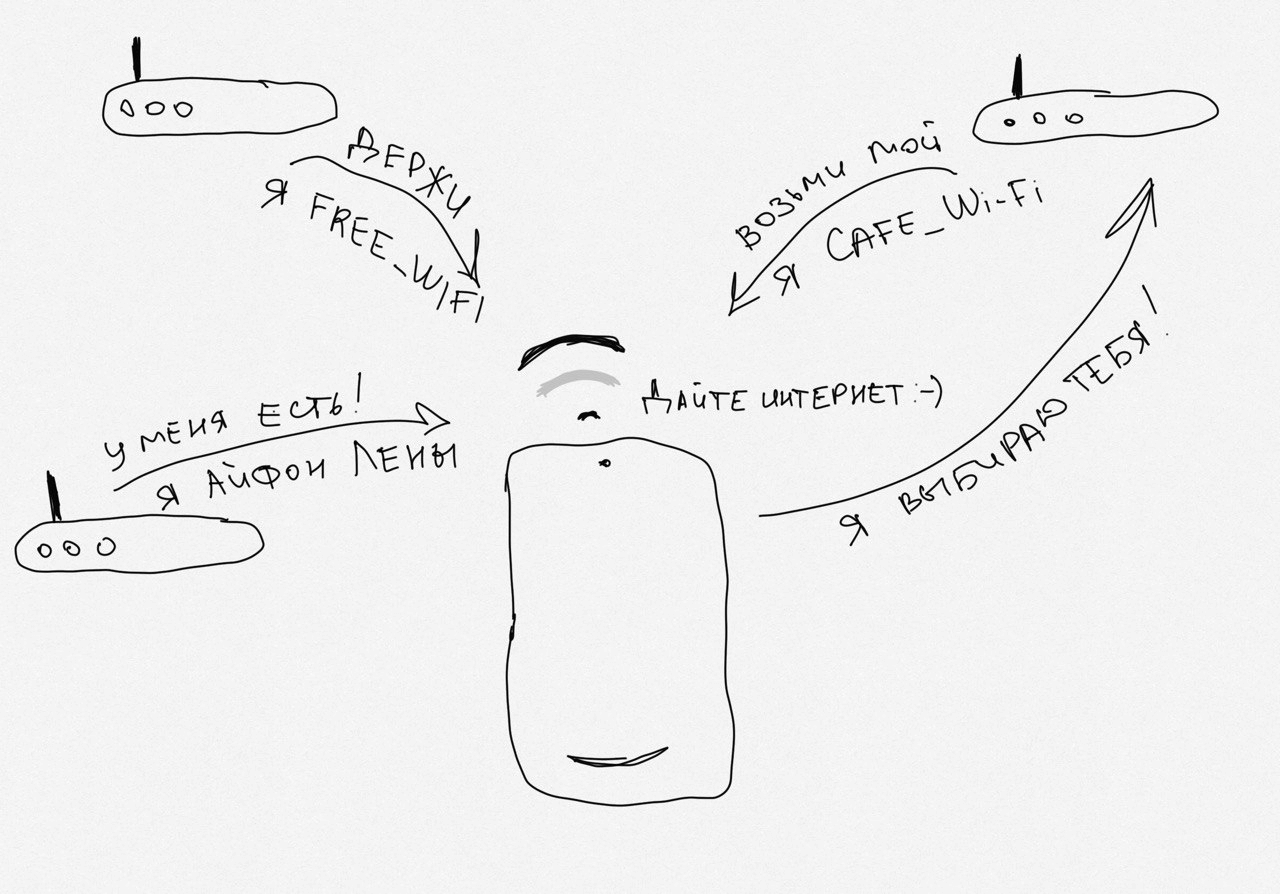 ДЕРЖИ
Я FREE_WIFI
ВОЗЬМИ МОЙ
Я CAFE_Wi-Fi
ДАЙТЕ ИНТЕРНЕТ :-)
У МЕНЯ ЕСТЬ!
Я АЙФОН ЛЕНЫ
Я ВЫБИРАЮ ТЕБЯ!